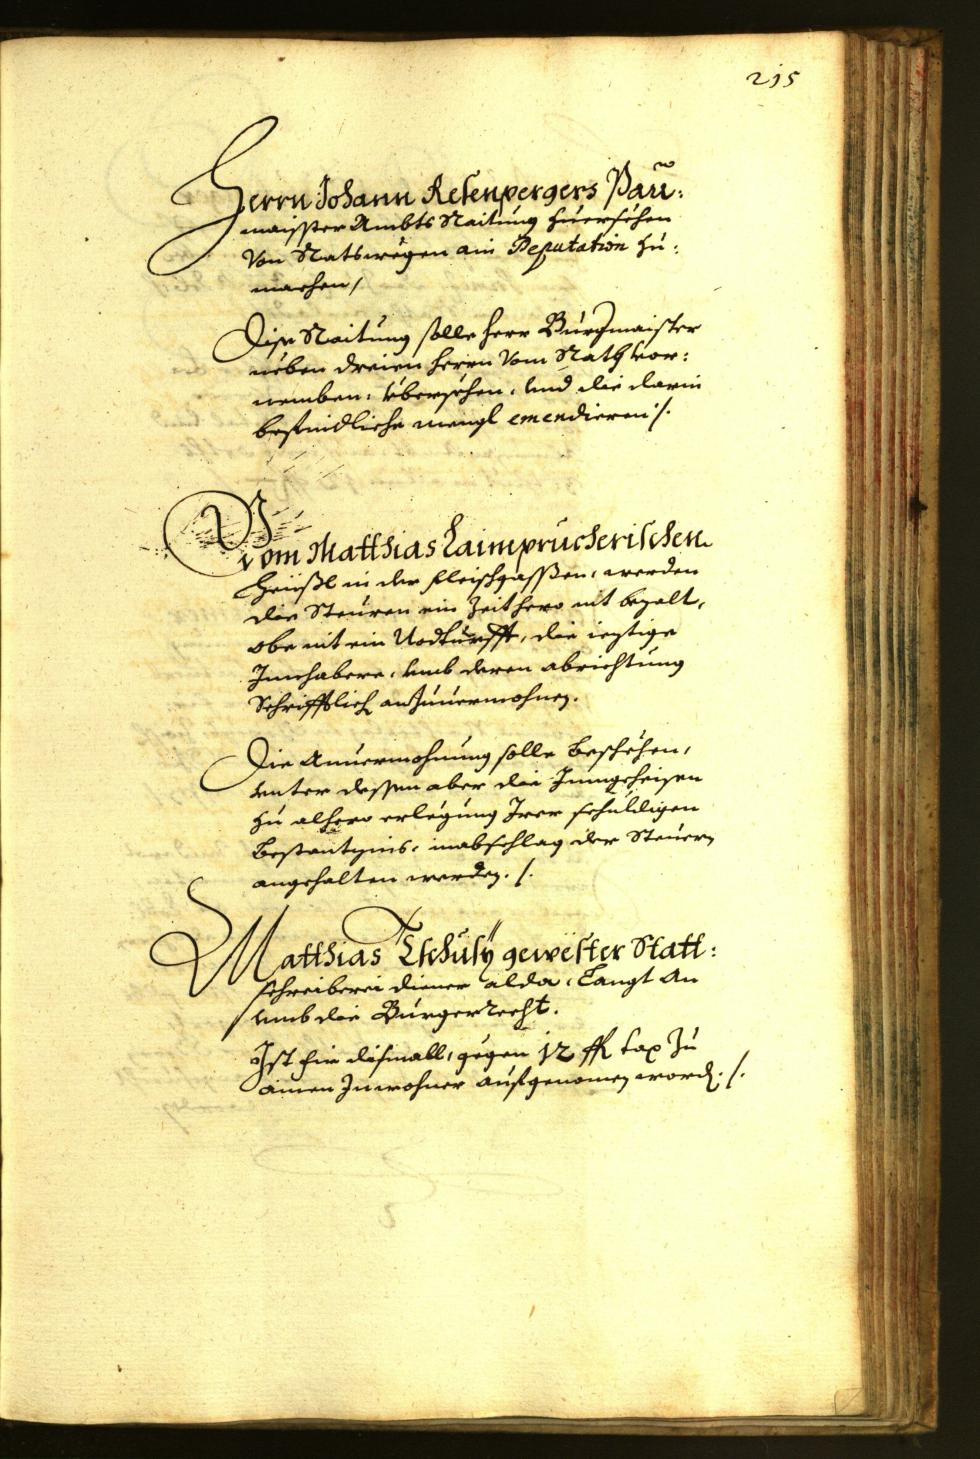 215
Herrn Johann Resenpergers Pau:
maisster Ambts Raitung zuuersechen
Von Ratswegen ain Deputation zu:
machen /
Dise Raitung solle herr Burgmaister
neben dreien herrn Vom Rath vor:
nemben, vbersechen, vnd die darin
befindliche mengl emendieren /.
Vom Matthias Laimprucherischen
Heüsßl in der fleischgassen, werden
die Steuren ein Zeithero nit bezalt,
obe nit ein Nodturfft, die ieztige
Innhabere, vmb deren abrichtung
Schrifftlich anzuuermohnen.
Die Anuermohnung solle beschehen,
vnter dessen aber die Inngeheisen
zu alhero erlegung Irer schuldigen
Bestantzins, in abschlag der Steuern
angehalten werden. /.
Matthias Tschusÿ gewester Statt:
schreiberei diener alda, Langt An
vmb die Burgerrecht.
Ist für dismall, gegen 12 fl tax Zu
ainen Inwohner aufgenomen word. /.